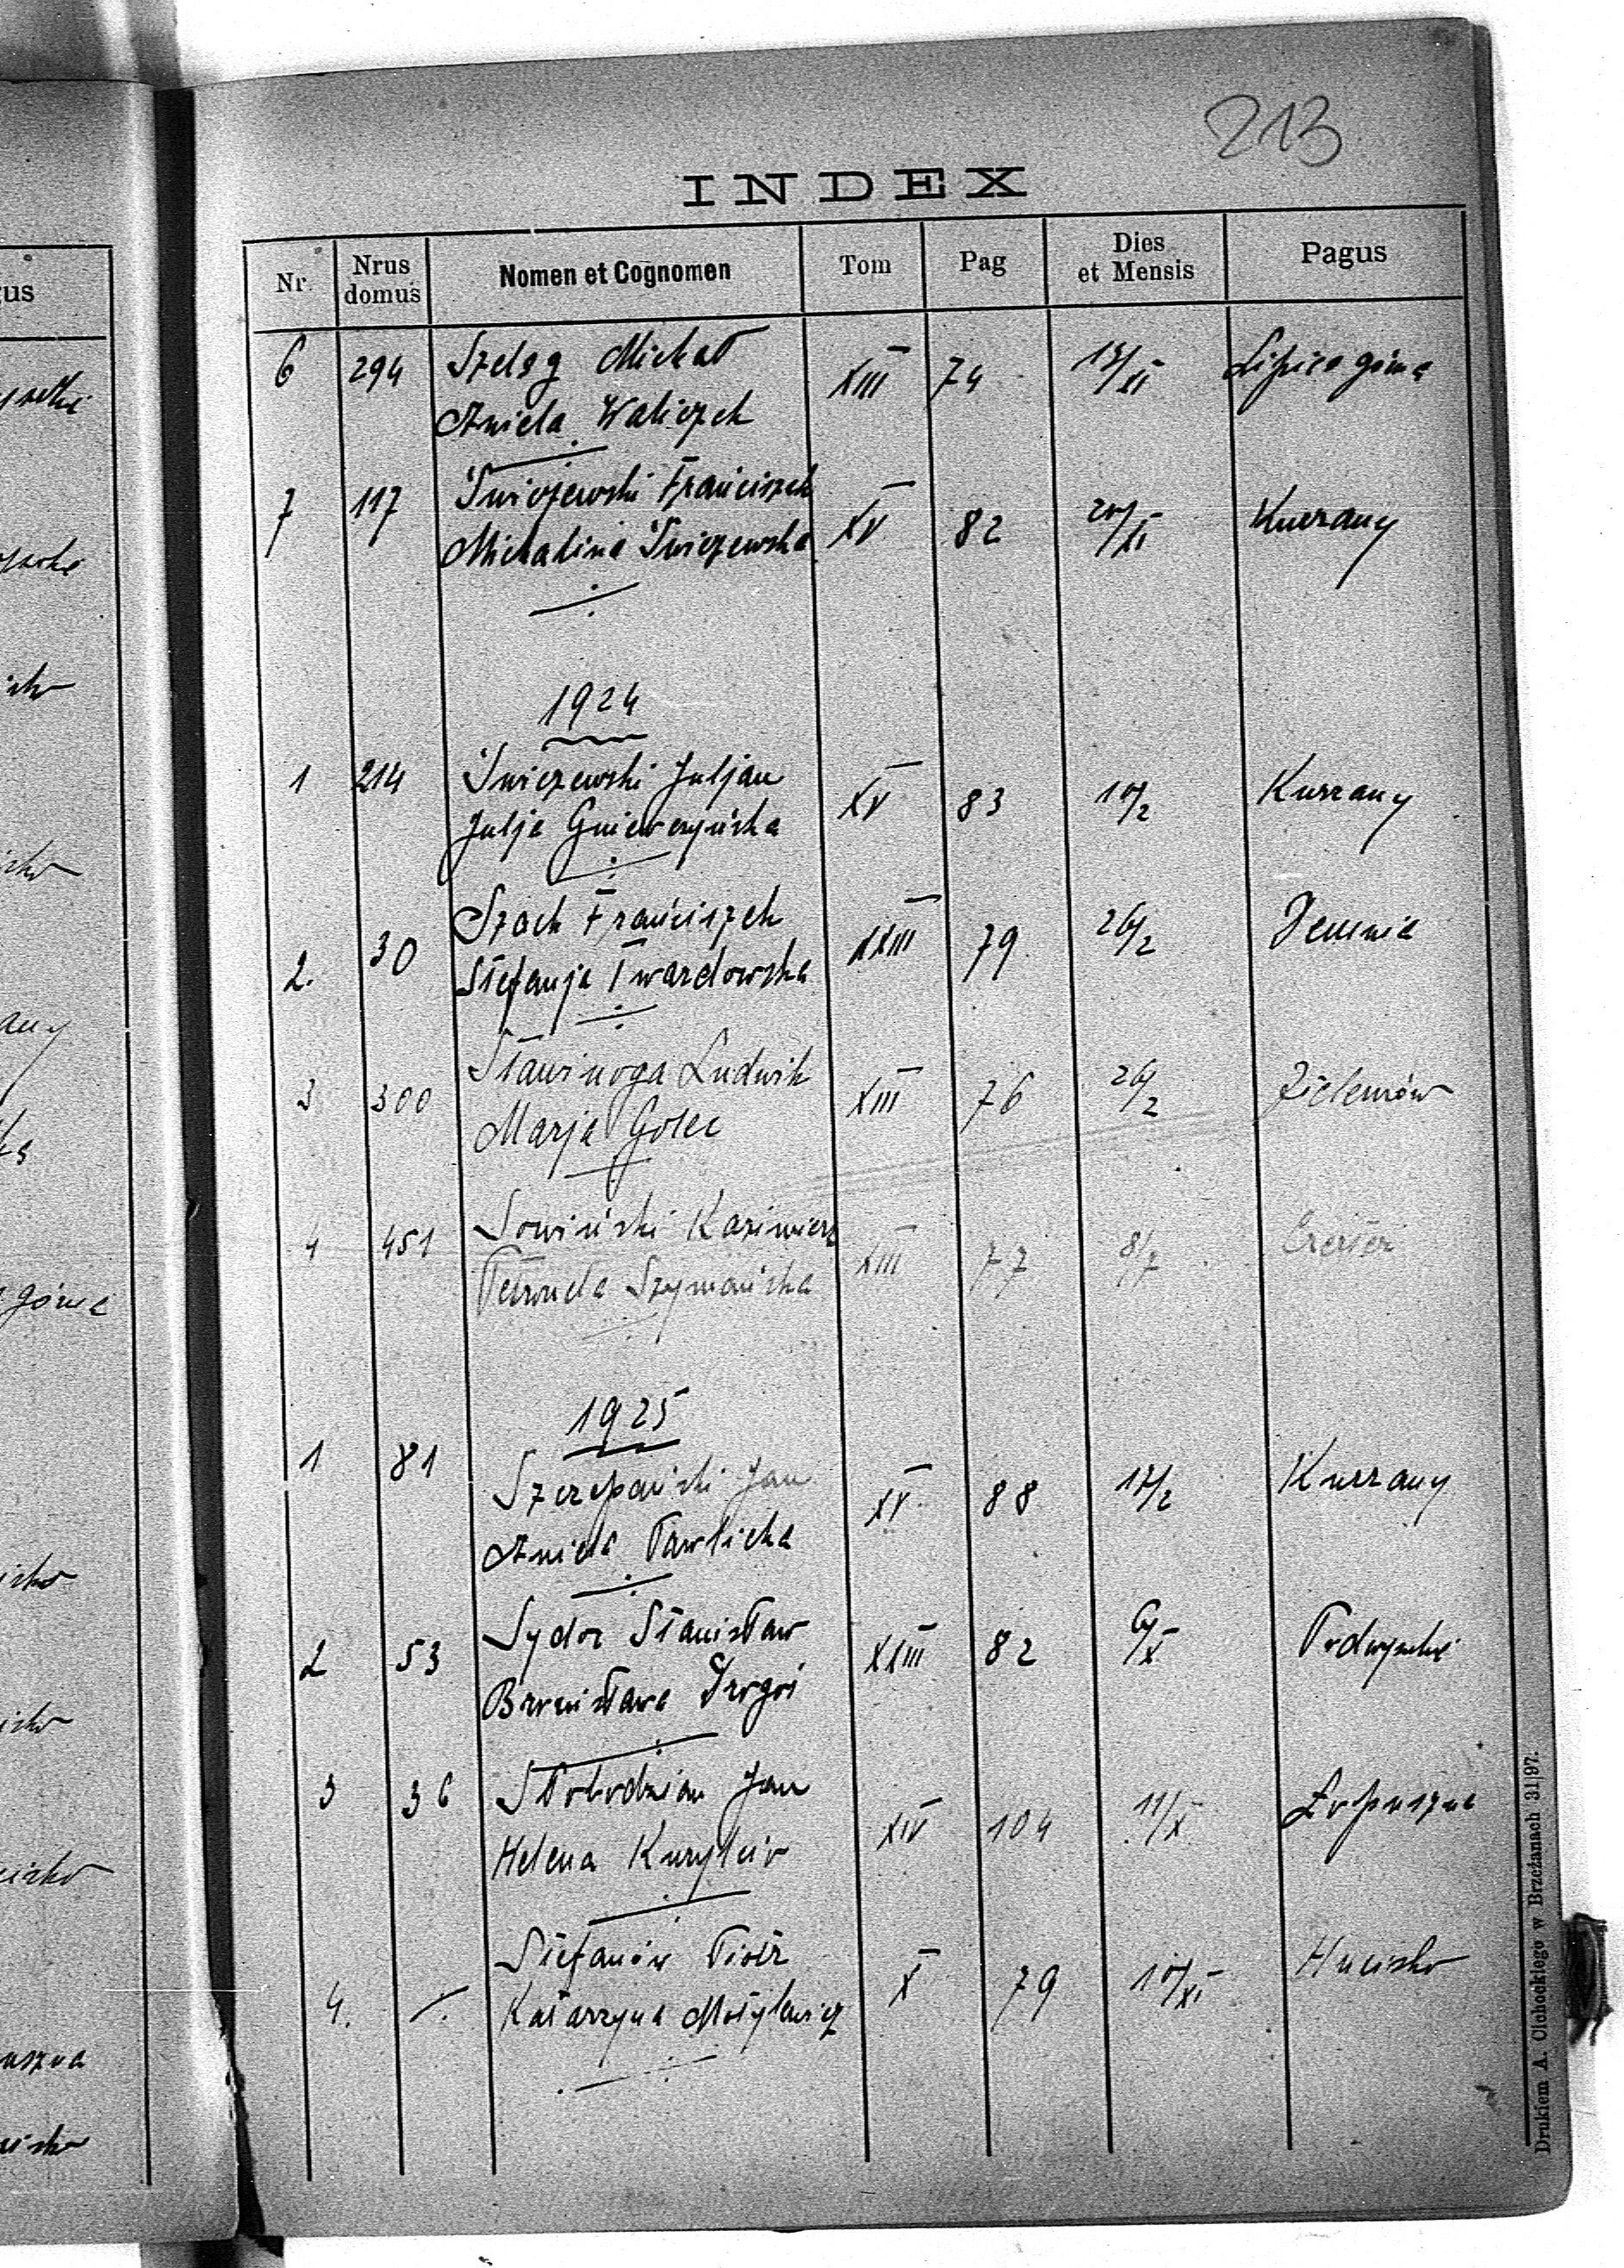 213
INDEX
Nr. Nrus domus Nomen et Cognomen Tom Pag Dies et Mensis Pagus
6 294 Szeląg Michał XIII 74 /XI Lipica górna
Aniela Waliczek
7 117 Świeżewski Franciszek XV 82 /XI Kurzany
Michalina Świeżewska
1924
1 214 Świeżewski Juljan XV 83 10/2 Kurzany
Julja Gniewczyńska
2. 30 Szach Franciszek XXIII 79 26/2 Demnia
Stefanja Twardowska
3 300 Stawinoga Ludwik XIII 76 26/2
Marja Golec
4 451 Sowiński Kazimierz XIII 77 8/7
Petronela Szymańska
1925
1 81 Szczepański Jan XV 88 17/2 Kurzany
Aniela Pawlicka
2 53 Sydor Stanisław XXIII 82 6/X Podwysokie
Bronisława
3 36 Słobodzian Jan XIV 104 11/X Łopuszna
Helena Kuryłów
4. Stefanów Piotr X 79 10/XI Hucisko
Katarzyna Motylewicz
Drukiem A. Olchockiego w Brzeżanach 31|97.